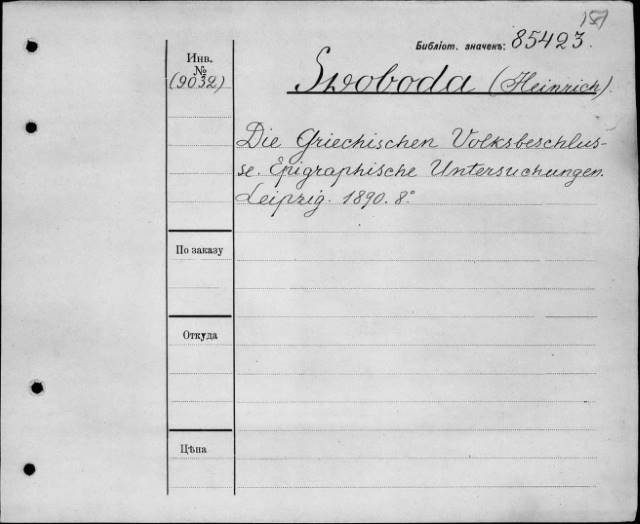 Библіот. значекъ: 85423.
Инв.
№
(9032)
Swoboda (Heinrich).
Die Griechischen Volksbeschlus-
se. Epigraphische Untersuchungen.
Leipzig. 1890. 8°
По заказу
Откуда
Цѣна